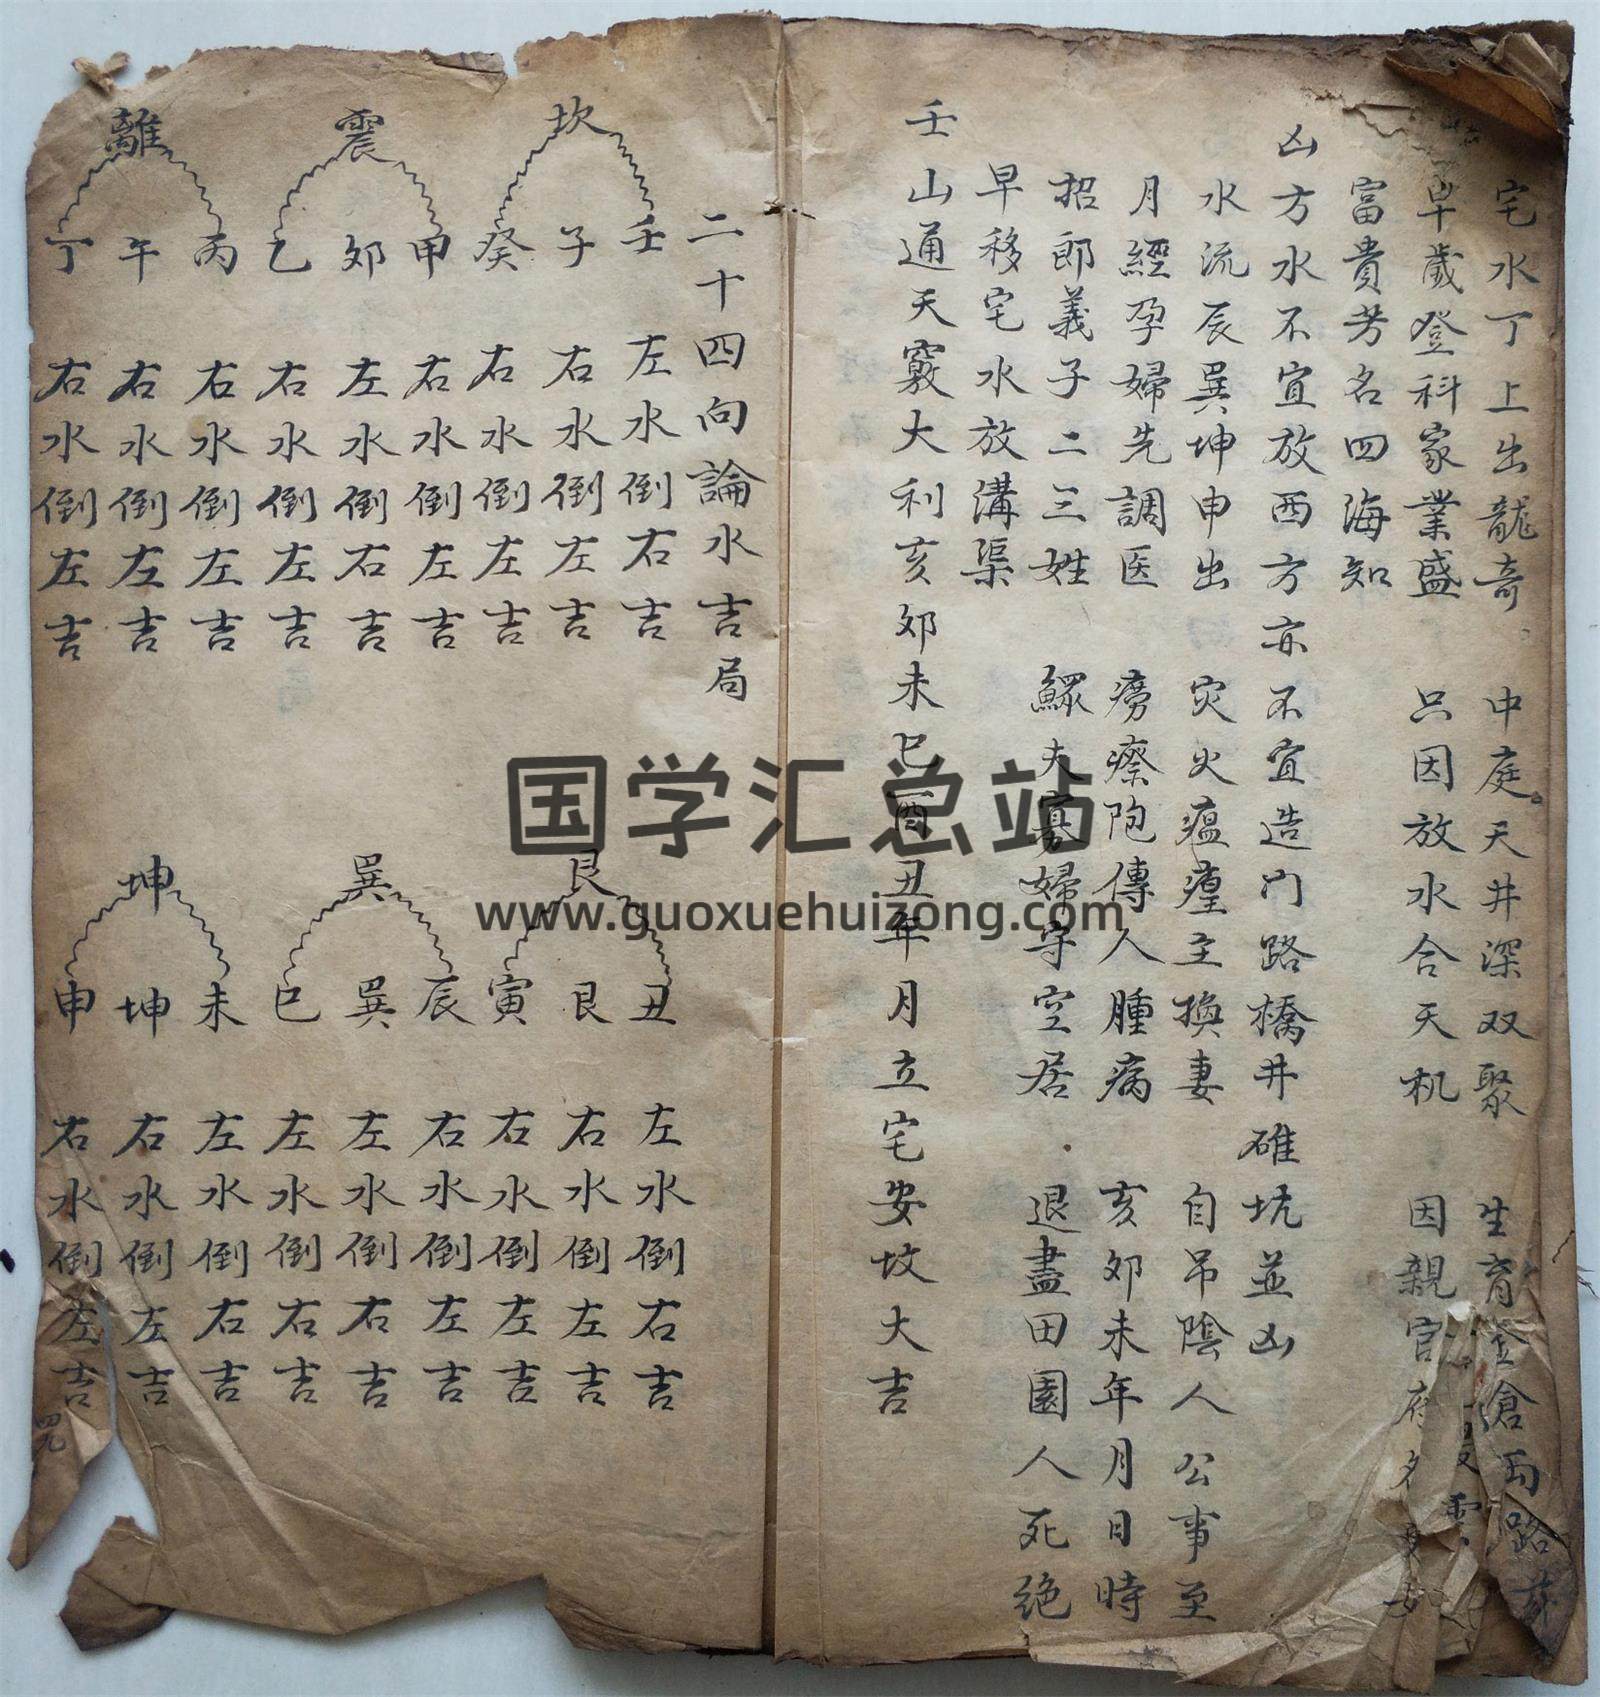 宅水丁上出龍奇 中庭天井深双聚 生育金倉両路
早歲登科家業盛 只因放水合天机 因親官府
富貴芳名四海知
凶方水不宜放西方亦不宜造门路橋井碓坑並凶
水流辰巽坤申出 灾火瘟瘽主換妻 自吊陰人公事至
月經孕婦先調医 癆瘵疱傳人腫病 亥卯未年月日時
招郎義子二三姓 鰥夫寡婦守空居 退盡田園人死绝
早移宅水放溝渠
壬山通天竅大利亥卯未巳酉丑年月立宅安坟大吉
二十四向論水吉局
坎
壬 左水倒右吉
子 右水倒左吉
癸 右水倒左吉
震
甲 右水倒左吉
卯 左水倒右吉
乙 右水倒左吉
離
丙 右水倒左吉
午 右水倒左吉
丁 右水倒左吉
艮
丑 左水倒右吉
艮 右水倒左吉
寅 右水倒左吉
巽
辰 右水倒左吉
巽 左水倒右吉
巳 左水倒右吉
坤
未 左水倒右吉
坤 右水倒左吉
申 右水倒左吉
国学汇总站
www.guoxuehuizong.com